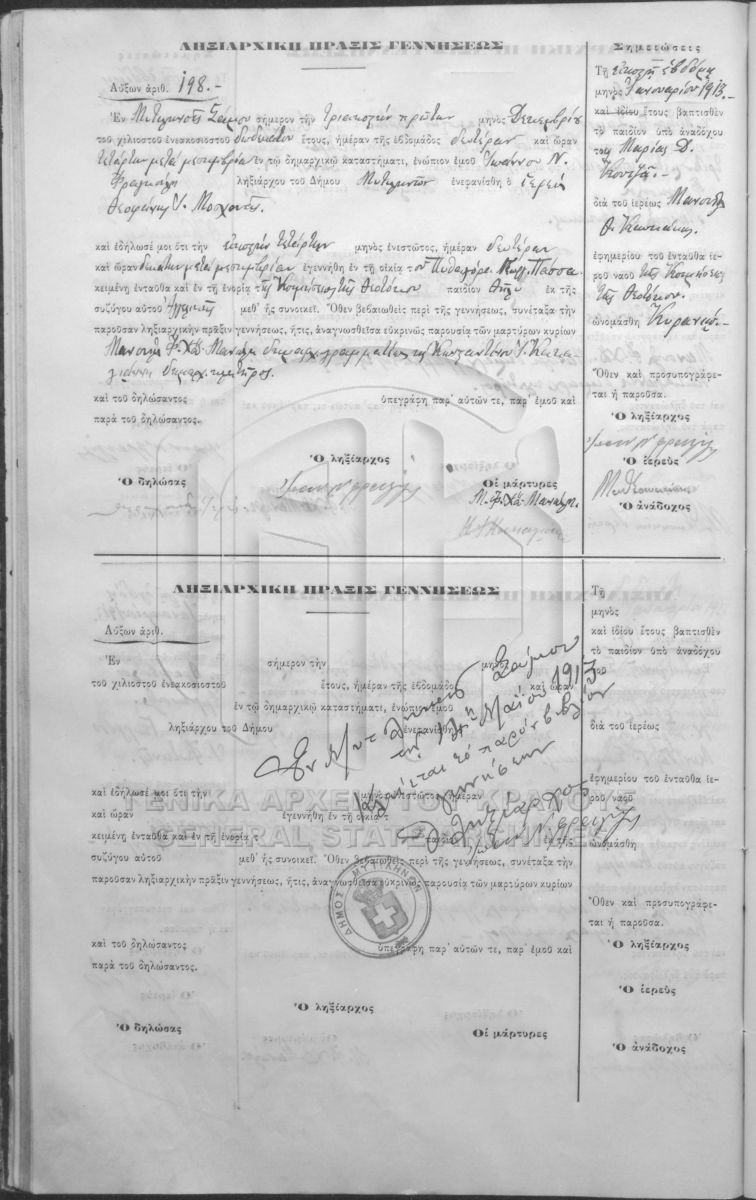 ΛΗΞΙΑΡΧΙΚΗ ΠΡΑΞΙΣ ΓΕΝΝΗΣΕΩΣ
Αὔξων ἀριθ. 198.-
Ἐν Μυτιληνιοῖς Σάμου σήμερον τὴν τριακοστὴν πρώτην μηνὸς Δεκεμβρίου
τοῦ χιλιοστοῦ ἐνεακοσιοστοῦ δωδεκάτου ἔτους, ἡμέραν τῆς ἑβδομάδος δευτέραν καὶ ὥραν
τετάρτην μετὰ μεσημβρίαν ἐν τῷ δημαρχικῷ καταστήματι, ἐνώπιον ἐμοῦ Ἰωάννου Ν.
ληξιάρχου τοῦ Δήμου Μυτιληνιῶν ἐνεφανίσθη ὁ ἱερεὺς
καὶ ἐδήλωσέ μοι ὅτι τὴν εἰκοστὴν τετάρτην μηνὸς ἐνεστῶτος, ἡμέραν δευτέραν
καὶ ὥραν δεκάτην μετὰ μεσημβρίαν ἐγεννήθη ἐν τῇ οἰκίᾳ τοῦ Πυθαγόρα
κειμένῃ ἐνταῦθα καὶ ἐν τῇ ἐνορίᾳ τῆς Κοιμήσεως τῆς Θεοτόκου παιδίον θῆλυ ἐκ τῆς
συζύγου αὐτοῦ μεθ᾽ ἧς συνοικεῖ. Ὅθεν βεβαιωθεὶς περὶ τῆς γεννήσεως, συνέταξα τὴν
παροῦσαν ληξιαρχικὴν πρᾶξιν γεννήσεως, ἥτις, ἀναγνωσθεῖσα εὐκρινῶς παρουσίᾳ τῶν μαρτύρων κυρίων
Μανουὴλ Φ. Χῆ Μανώλη
καὶ τοῦ δηλώσαντος ὑπεγράφη παρ᾽ αὐτῶν τε, παρ᾽ ἐμοῦ καὶ
παρὰ τοῦ δηλώσαντος.
Ὁ ληξίαρχος
Ὁ δηλώσας
Οἱ μάρτυρες
Σημειώσεις
Τῇ εἰκοστῇ ἑβδόμῃ
μηνὸς Ἰανουαρίου 1913.
καὶ ἰδίου ἔτους βαπτισθὲν
τὸ παιδίον ὑπὸ ἀναδόχου
Μαρίας Δ.
διὰ τοῦ ἱερέως Μανουὴλ
ἐφημερίου τοῦ ἐνταῦθα ἱε-
ροῦ ναοῦ τῆς Κοιμήσεως
τῆς Θεοτόκου.
ὠνομάσθη
Ὅθεν καὶ προσυπογράφε-
ται ἡ παροῦσα.
Ὁ ληξίαρχος
Ὁ ἱερεὺς
Ὁ ἀνάδοχος
ΛΗΞΙΑΡΧΙΚΗ ΠΡΑΞΙΣ ΓΕΝΝΗΣΕΩΣ
Αὔξων ἀριθ.
Ἐν σήμερον τὴν μηνὸς
τοῦ χιλιοστοῦ ἐνεακοσιοστοῦ ἔτους, ἡμέραν τῆς ἑβδομάδος καὶ ὥραν
ἐν τῷ δημαρχικῷ καταστήματι, ἐνώπιον ἐμοῦ
ληξιάρχου τοῦ Δήμου ἐνεφανίσθη
καὶ ἐδήλωσέ μοι ὅτι τὴν μηνὸς ἐνεστῶτος, ἡμέραν
καὶ ὥραν ἐγεννήθη ἐν τῇ οἰκίᾳ τ
κειμένῃ ἐνταῦθα καὶ ἐν τῇ ἐνορίᾳ τ παιδίον ἐκ τῆς
συζύγου αὐτοῦ μεθ᾽ ἧς συνοικεῖ. Ὅθεν βεβαιωθεὶς περὶ τῆς γεννήσεως, συνέταξα τὴν
παροῦσαν ληξιαρχικὴν πρᾶξιν γεννήσεως, ἥτις, ἀναγνωσθεῖσα εὐκρινῶς παρουσίᾳ τῶν μαρτύρων κυρίων
καὶ τοῦ δηλώσαντος ὑπεγράφη παρ᾽ αὐτῶν τε, παρ᾽ ἐμοῦ καὶ
παρὰ τοῦ δηλώσαντος.
Ὁ ληξίαρχος
Ὁ δηλώσας
Οἱ μάρτυρες
Ἐν Μυτιληνιοῖς Σάμου
τῇ Μαΐου 1913
τὸ παρὸν βιβλίον
γεννήσεων
Ὁ Ληξίαρχος
ΔΗΜΟΣ ΜΥΤΙΛΗΝΙΩΝ
ΓΕΝΙΚΑ ΑΡΧΕΙΑ ΤΟΥ ΚΡΑΤΟΥΣ
GENERAL STATE ARCHIVES
Τῇ
μηνὸς
καὶ ἰδίου ἔτους βαπτισθὲν
τὸ παιδίον ὑπὸ ἀναδόχου
τοῦ
διὰ τοῦ ἱερέως
ἐφημερίου τοῦ ἐνταῦθα ἱε-
ροῦ ναοῦ
ὠνομάσθη
Ὅθεν καὶ προσυπογράφε-
ται ἡ παροῦσα.
Ὁ ληξίαρχος
Ὁ ἱερεὺς
Ὁ ἀνάδοχος